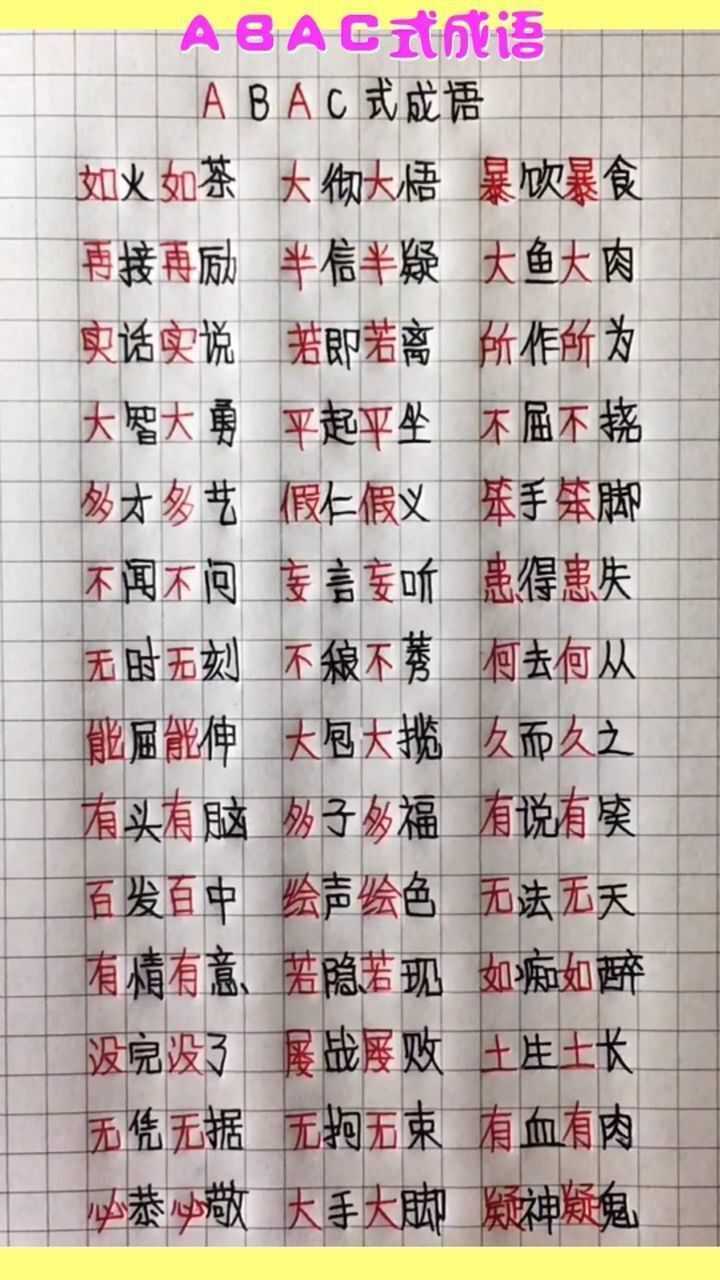 ABAC式成语
ABAC式成语
如火如茶 大彻大悟 暴饮暴食
再接再励 半信半疑 大鱼大肉
实话实说 若即若离 所作所为
大智大勇 平起平坐 不屈不挠
多才多艺 假仁假义 笨手笨脚
不闻不问 妄言妄听 患得患失
无时无刻 不稂不莠 何去何从
能屈能伸 大包大揽 久而久之
有头有脑 多子多福 有说有笑
百发百中 绘声绘色 无法无天
有情有意 若隐若现 如痴如醉
没完没了 屡战屡败 土生土长
无凭无据 无拘无束 有血有肉
必恭必敬 大手大脚 疑神疑鬼